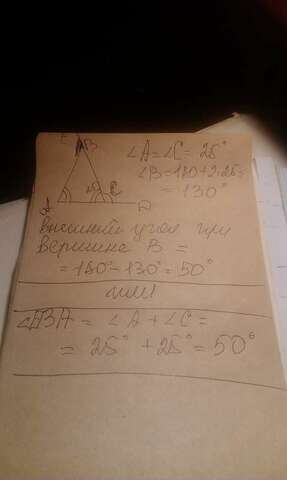 E
B
∠A=∠C= 25°
∠B=180+2·25=
= 130°
A
C
D
Внешний угол при
вершине B =
= 180°- 130° = 50°
или
∠ABA = ∠A + ∠C =
= 25° + 25° = 50°